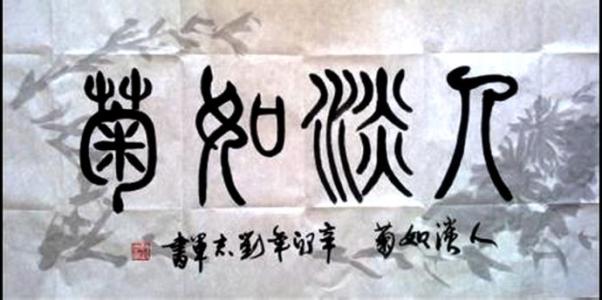 人淡如菊
人淡如菊 辛卯年劉志軍書